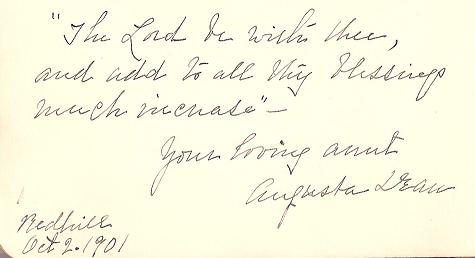 "The Lord be with thee,
and add to all thy blessings
much increase"—
Your loving aunt
Augusta Dean
Redhill
Oct 2. 1901